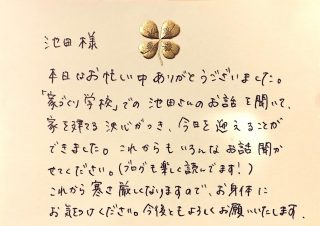 池田様
本日はお忙しい中ありがとうございました。
「家づくり学校」での池田さんのお話を聞いて、
家を建てる決心がつき、今日を迎えることが
できました。これからもいろんなお話聞か
せてください。(ブログも楽しく読んでます!)
これから寒さ厳しくなりますので、お身体に
お気をつけください。今後ともよろしくお願いいたします.